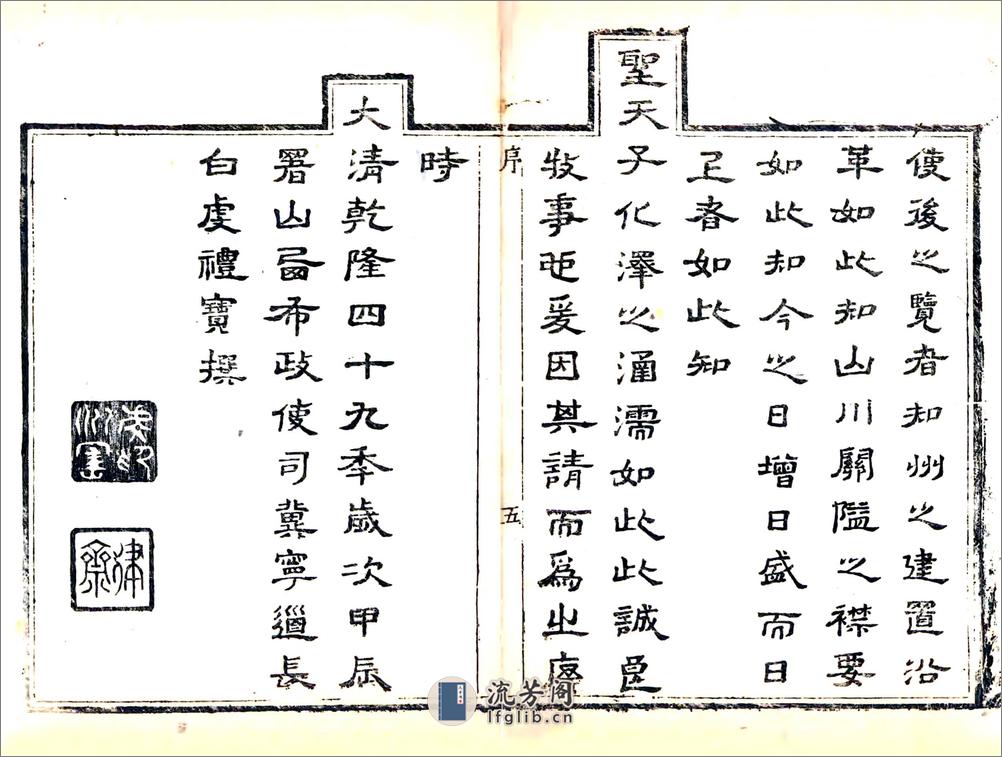 使後之覽者知州之建置沿
革如此知山川關隘之襟要
如此知今之日增日盛而日
者如此知
聖天子化澤之涵濡如此此誠邑
牧事也爰因其請而爲之序
序 五
時
大清乾隆四十九季歲次甲辰
署山西布政使司冀寧道長
白虔禮寶撰
流芳阁
lfglib.cn